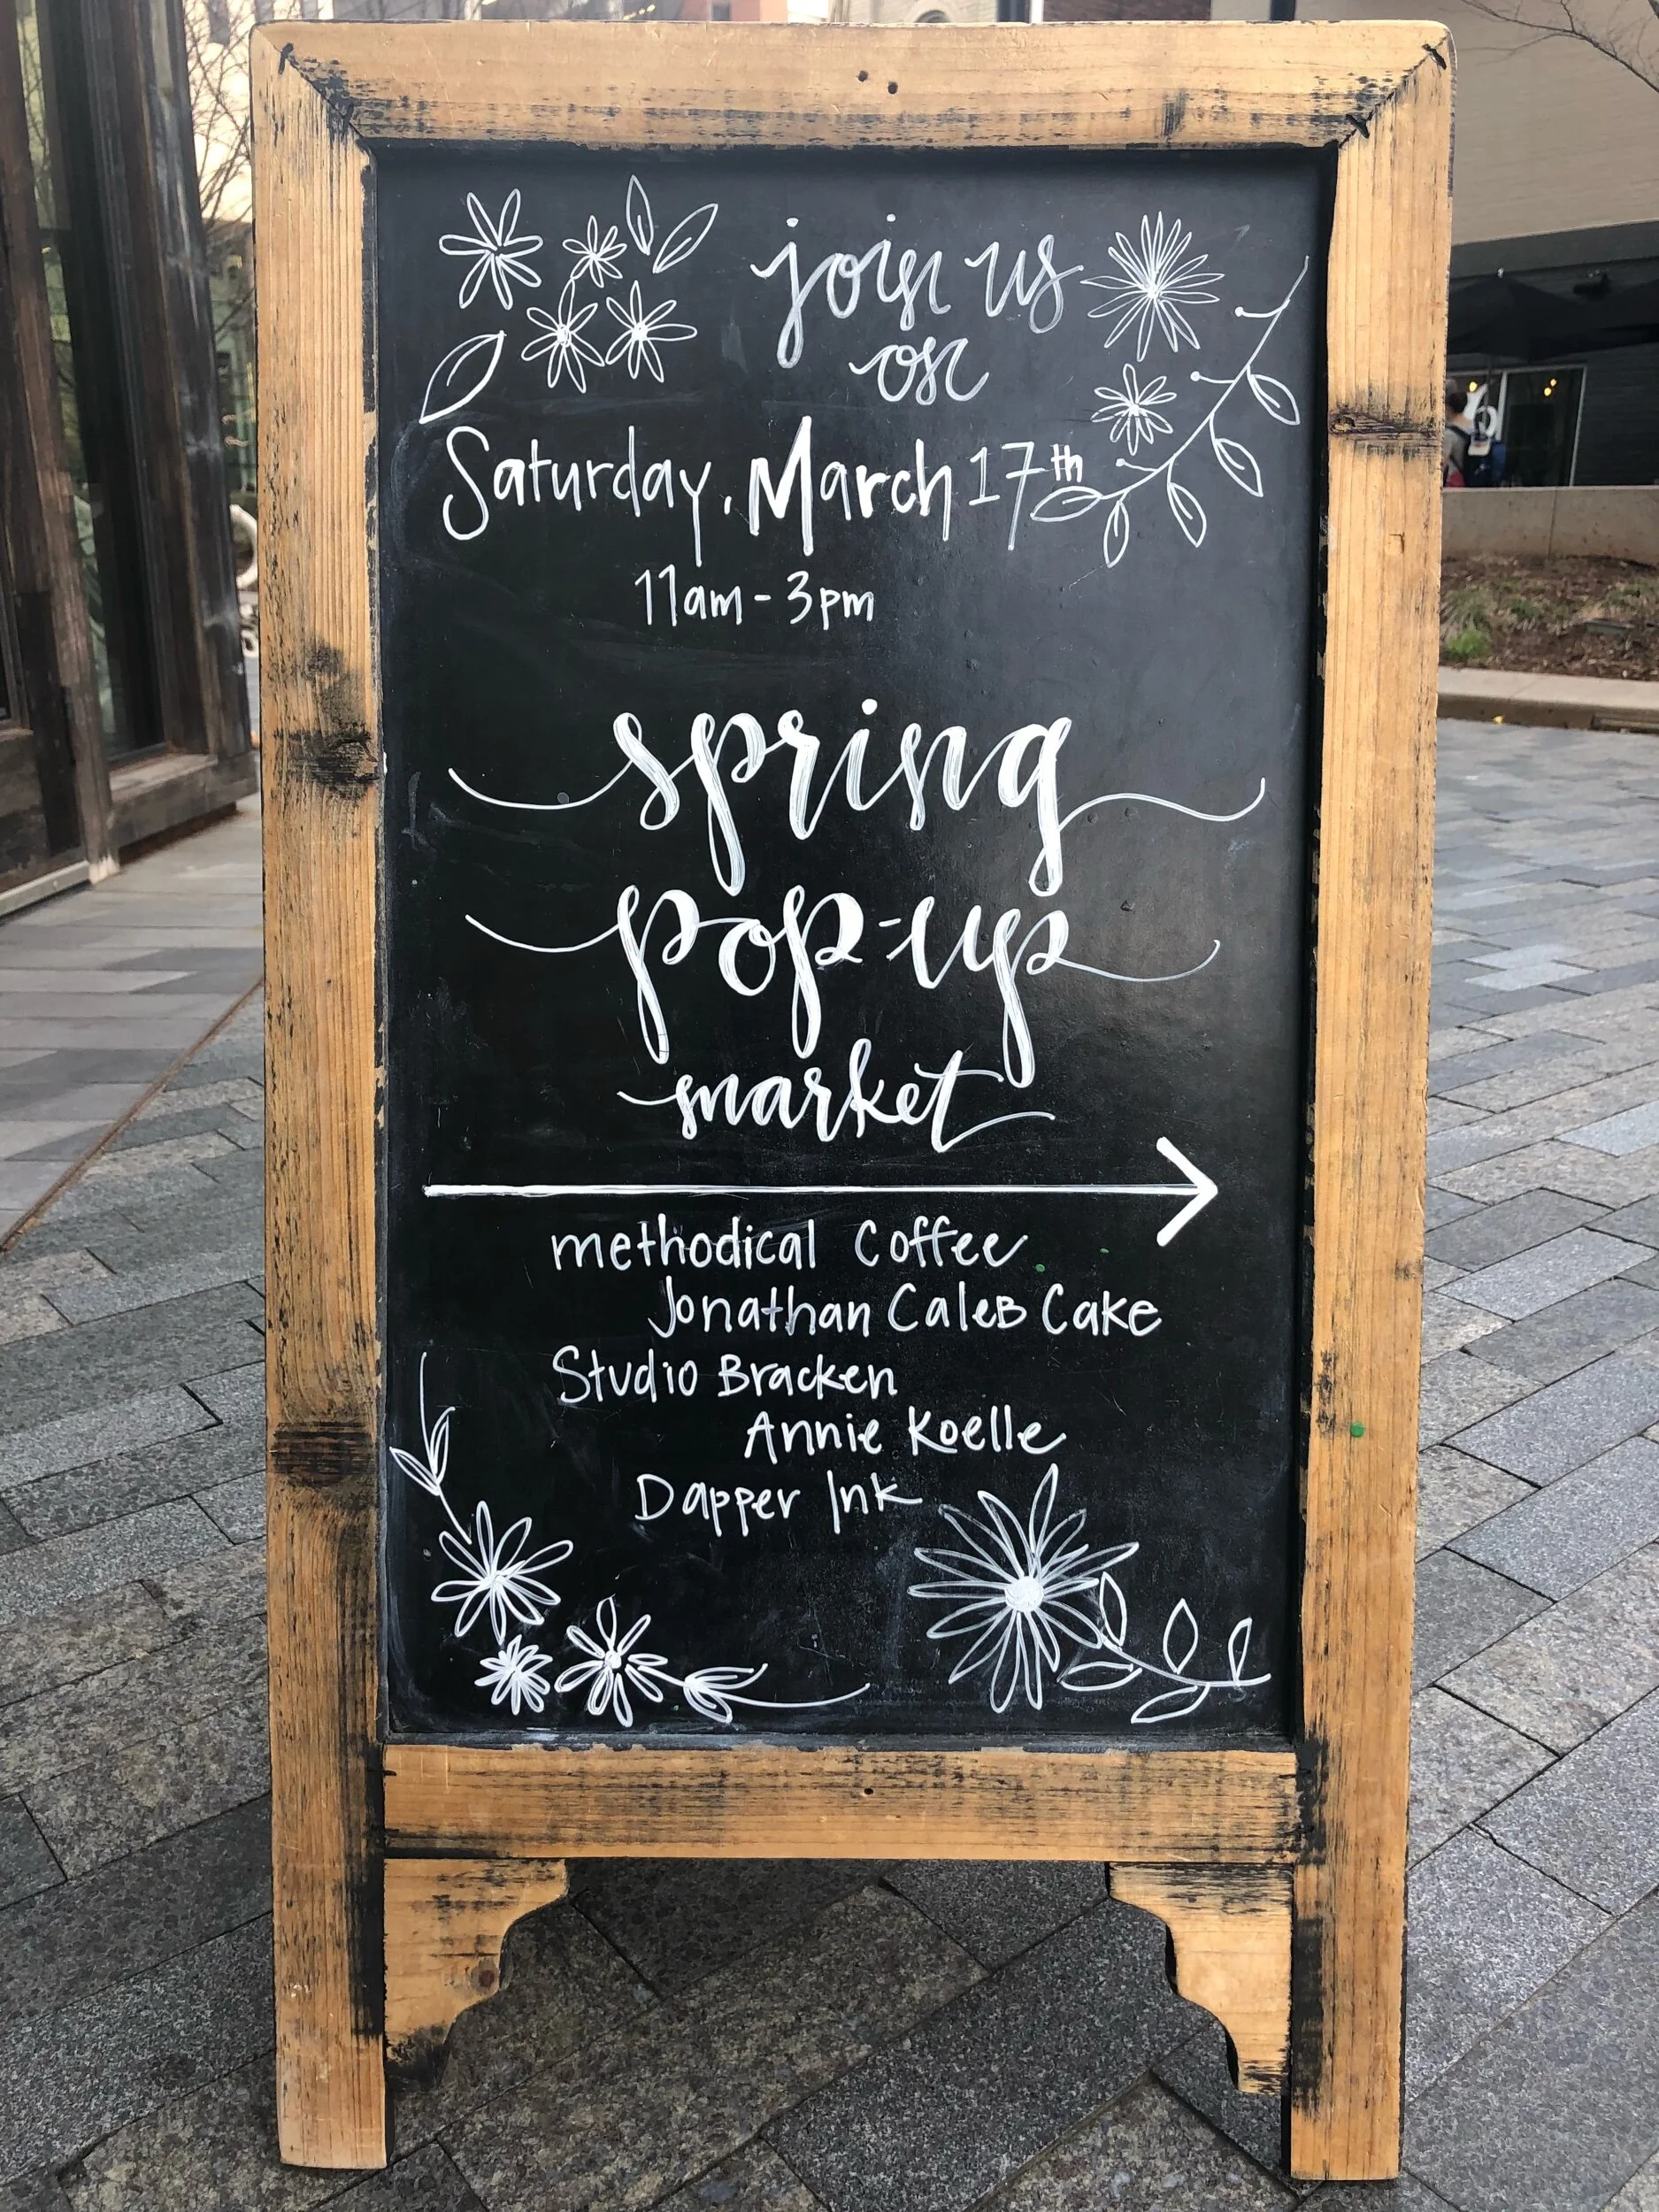 join us
on
Saturday, March 17th
11am - 3pm
spring
pop-up
market
methodical Coffee
Jonathan Caleb Cake
Studio Bracken
Annie Koelle
Dapper Ink